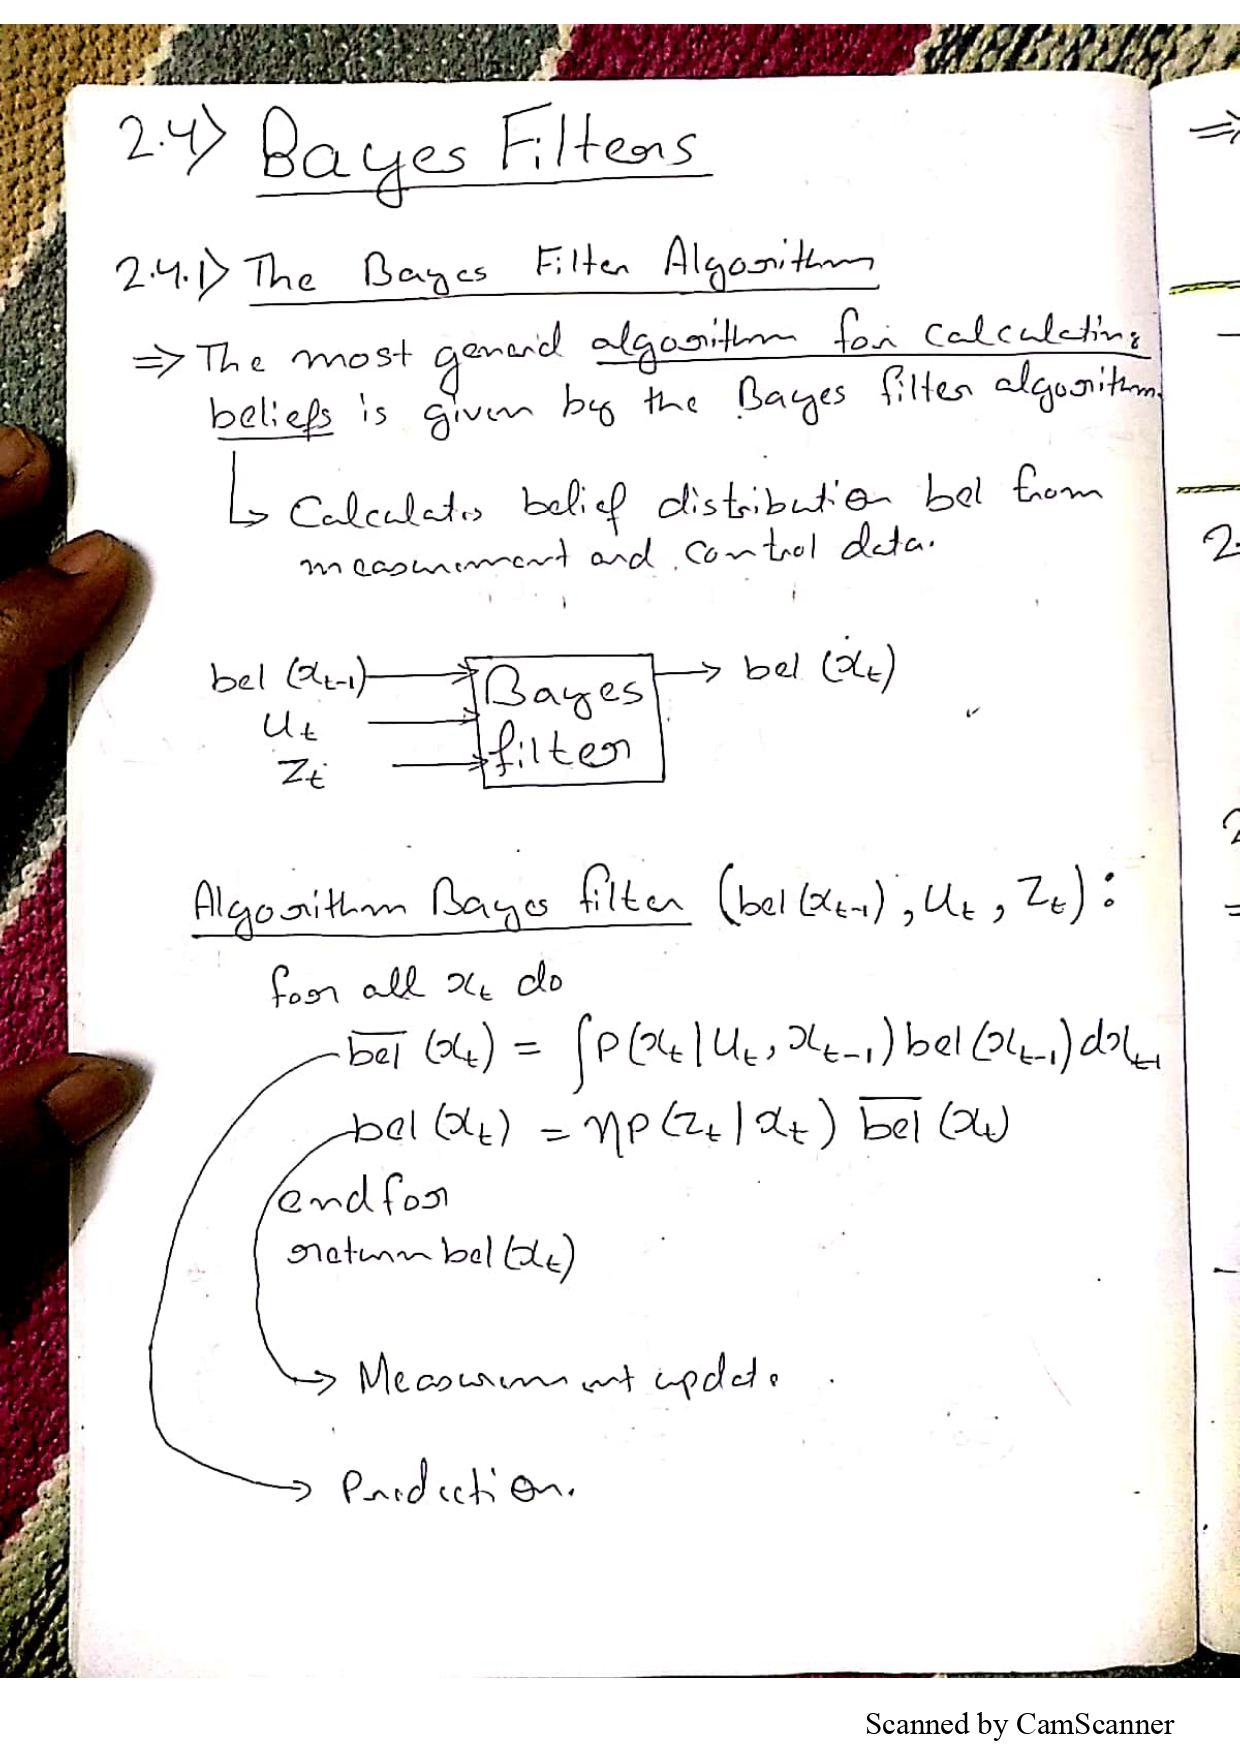 2.4) Bayes Filters
2.4.1) The Bayes Filter Algorithm
⇒ The most general algorithm for calculating
beliefs is given by the Bayes filter algorithm.
↳ Calculates belief distribution bel from
measurement and control data.
bel (x_{t-1}) → Bayes filter → bel (x_t)
u_t →
z_t →
Algorithm Bayes filter (bel(x_{t-1}), u_t, z_t):
for all x_t do
\overline{bel} (x_t) = ∫ p(x_t | u_t, x_{t-1}) bel(x_{t-1}) dx_{t-1}
bel (x_t) = η p(z_t | x_t) \overline{bel} (x_t)
endfor
return bel(x_t)
→ Measurement update
→ Prediction.
⇒
2.
2
=
Scanned by CamScanner